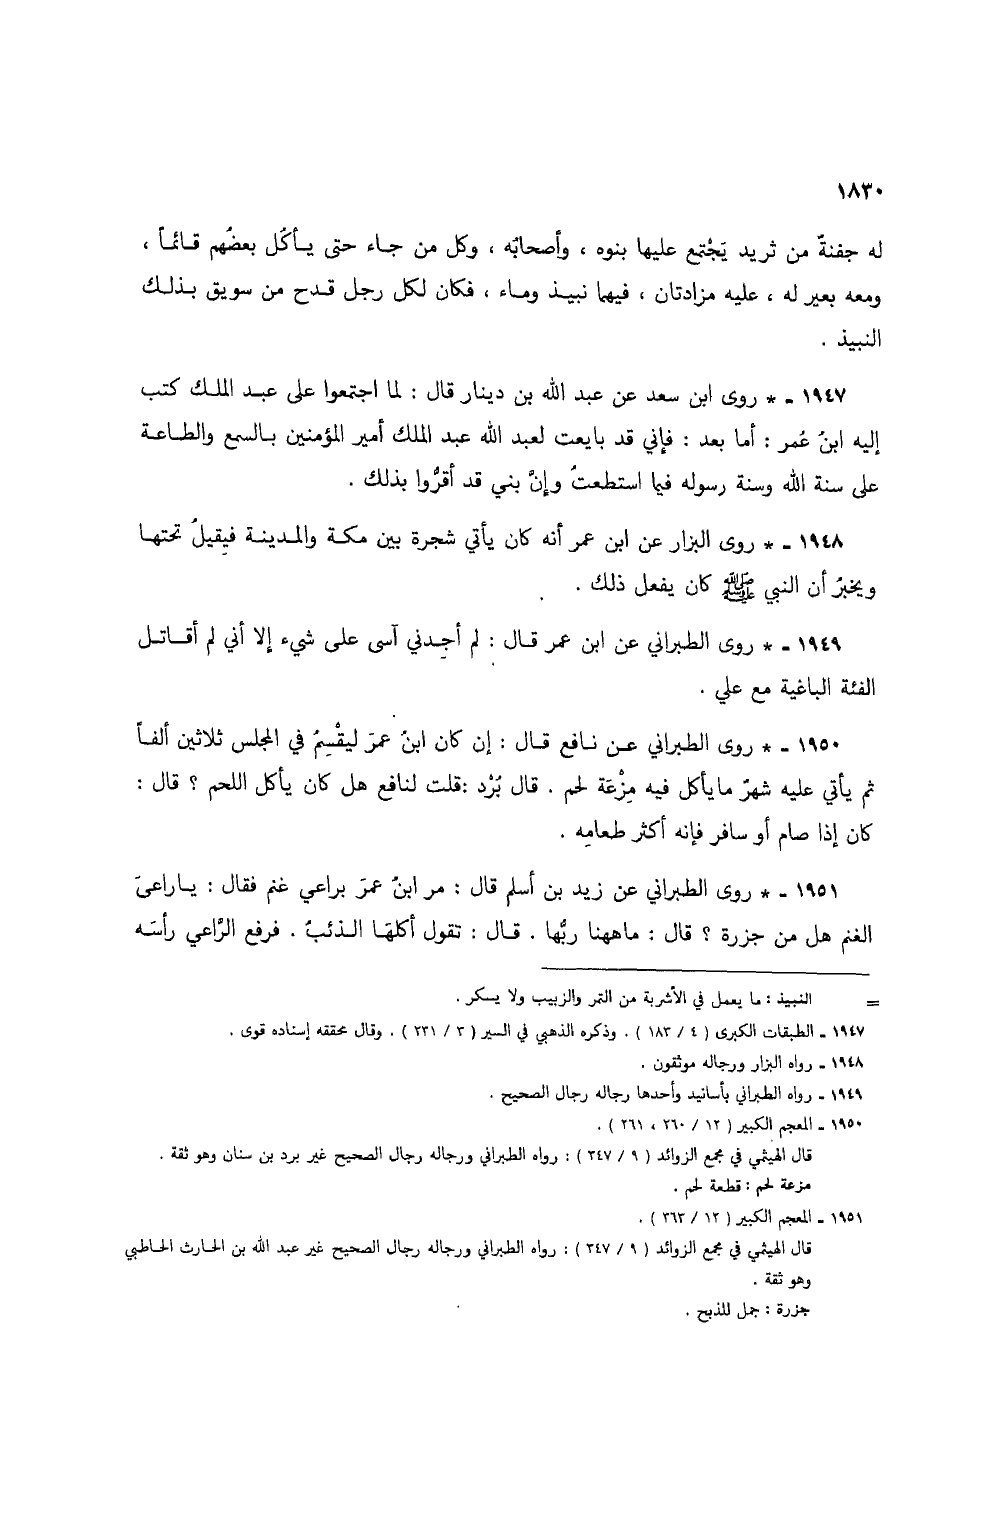 ١٨٣٠
له جفنةٌ من ثريد يَجْتمع عليها بنوه ، وأصحابُه ، وكل من جـاء حتى يـأكُل بعضُهم قـائمـاً ،
ومعه بعير له ، عليه مزادتان ، فيهما نبيـذ ومـاء ، فكان لكل رجل قـدح من سويق بـذلـك
النبيذ .
١٩٤٧ ـ * روى ابن سعد عن عبد الله بن دينار قال : لما اجتمعوا على عبـد الملـك كتب
إليه ابنُ عُمر : أما بعد : فإني قد بايعت لعبد الله عبد الملك أمير المؤمنين بـالسمع والطـاعـة
على سنة الله وسنة رسوله فيما استطعتُ وإنَّ بني قد أقرُّوا بذلك .
١٩٤٨ ـ * روى البزار عن ابن عمر أنه كان يأتي شجرة بين مكـة والمـدينـة فيَقِيلُ تحتهـا
ويخبرُ أن النبي ﷺ كان يفعل ذلك .
١٩٤٩ ـ * روى الطبراني عن ابن عمر قـال : لم أجِـدني آسى على شيء إلا أني لم أقـاتـل
الفئة الباغية مع علي .
١٩٥٠ ـ * روى الطبراني عـن نـافع قـال : إن كان ابنُ عمرَ ليقْسِمُ في المجلس ثلاثين ألفـاً
ثم يأتي عليه شهرٌ مايأكل فيه مِزْعَة لحم . قال بُرْد :قلت لنافع هل كان يأكل اللحم ؟ قال :
كان إذا صام أو سافر فإنه أكثر طعامِه .
١٩٥١ ـ * روى الطبراني عن زيد بن أسلم قال : مر ابنُ عمرَ براعي غنم فقال : يـاراعيَ
الغنم هل من جزرة ؟ قال : ماههنا ربُّها . قـال : تقول أكلهَـا الـذئبُ . فرفع الرَّاعي رأسَـه
= النبيذ : ما يعمل في الأشربة من التمر والزبيب ولا يسكر .
١٩٤٧ ـ الطبقات الكبرى ( ٤ / ١٨٣ ) . وذكره الذهبي في السير ( ٣ / ٢٣١ ) . وقال محققه إسناده قوى .
١٩٤٨ ـ رواه البزار ورجاله موثقون .
١٩٤٩ ـ رواه الطبراني بأسانيد وأحدها رجاله رجال الصحيح .
١٩٥٠ ـ المعجم الكبير ( ١٢ / ٢٦٠ ، ٢٦١ ) .
قال الهيثمي في مجمع الزوائد ( ٩ / ٣٤٧ ) : رواه الطبراني ورجاله رجال الصحيح غير برد بن سنان وهو ثقة .
مزعة لحم : قطعة لحم .
١٩٥١ ـ المعجم الكبير ( ١٢ / ٣٦٣ ) .
قال الهيثمي في مجمع الزوائد ( ٩ / ٣٤٧ ) : رواه الطبراني ورجاله رجال الصحيح غير عبد الله بن الحارث الحـاطبي
وهو ثقة .
جزرة : جمل للذبح .